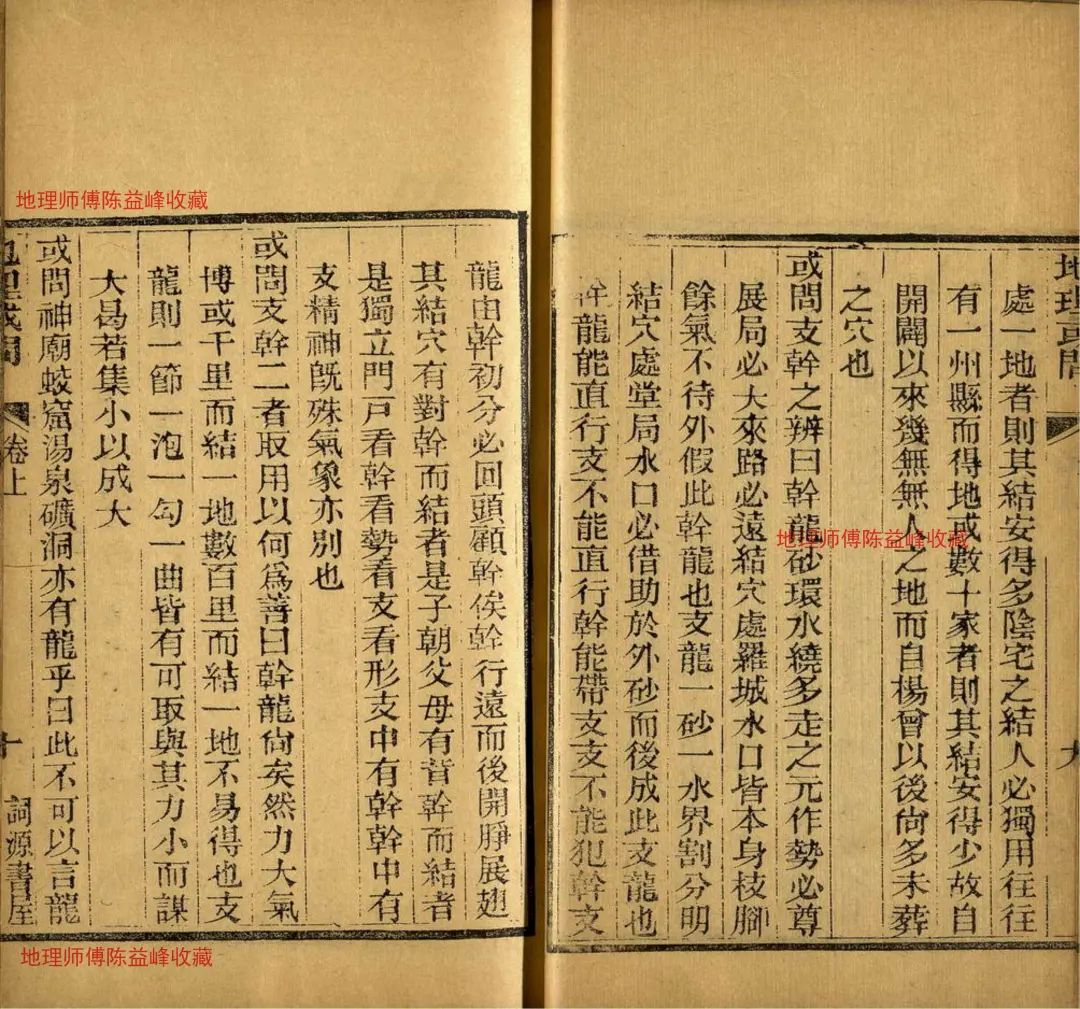 地理或問
處一地者則其結安得多陰宅之結人必獨用往往
有一州縣而得地或數十家者則其結安得少故自
開闢以來幾無無人之地而自楊曾以後尙多未葬
之穴也
或問支幹之辨曰幹龍砂環水繞多走之元作勢必尊
展局必大來路必遠結穴處羅城水口皆本身枝腳
餘氣不待外假此幹龍也支龍一砂一水界割分明
結穴處堂局水口必借助於外砂而後成此支龍也
幹龍能直行支不能直行幹能帶支支不能犯幹支
九
龍由幹初分必回頭顧幹俟幹行遠而後開睜展翅
其結穴有對幹而結者是子朝父母有背幹而結者
是獨立門戸看幹看勢看支看形支中有幹幹中有
支精神旣殊氣象亦別也
或問支幹二者取用以何爲善曰幹龍尙矣然力大氣
博或千里而結一地數百里而結一地不易得也支
龍則一節一泡一勾一曲皆有可取與其力小而謀
大曷若集小以成大
或問神廟蛟窟湯泉礦洞亦有龍乎曰此不可以言龍
地理或問
卷上
十
詞源書屋
地理师傅陈益峰收藏
地理师傅陈益峰收藏
地理师傅陈益峰收藏